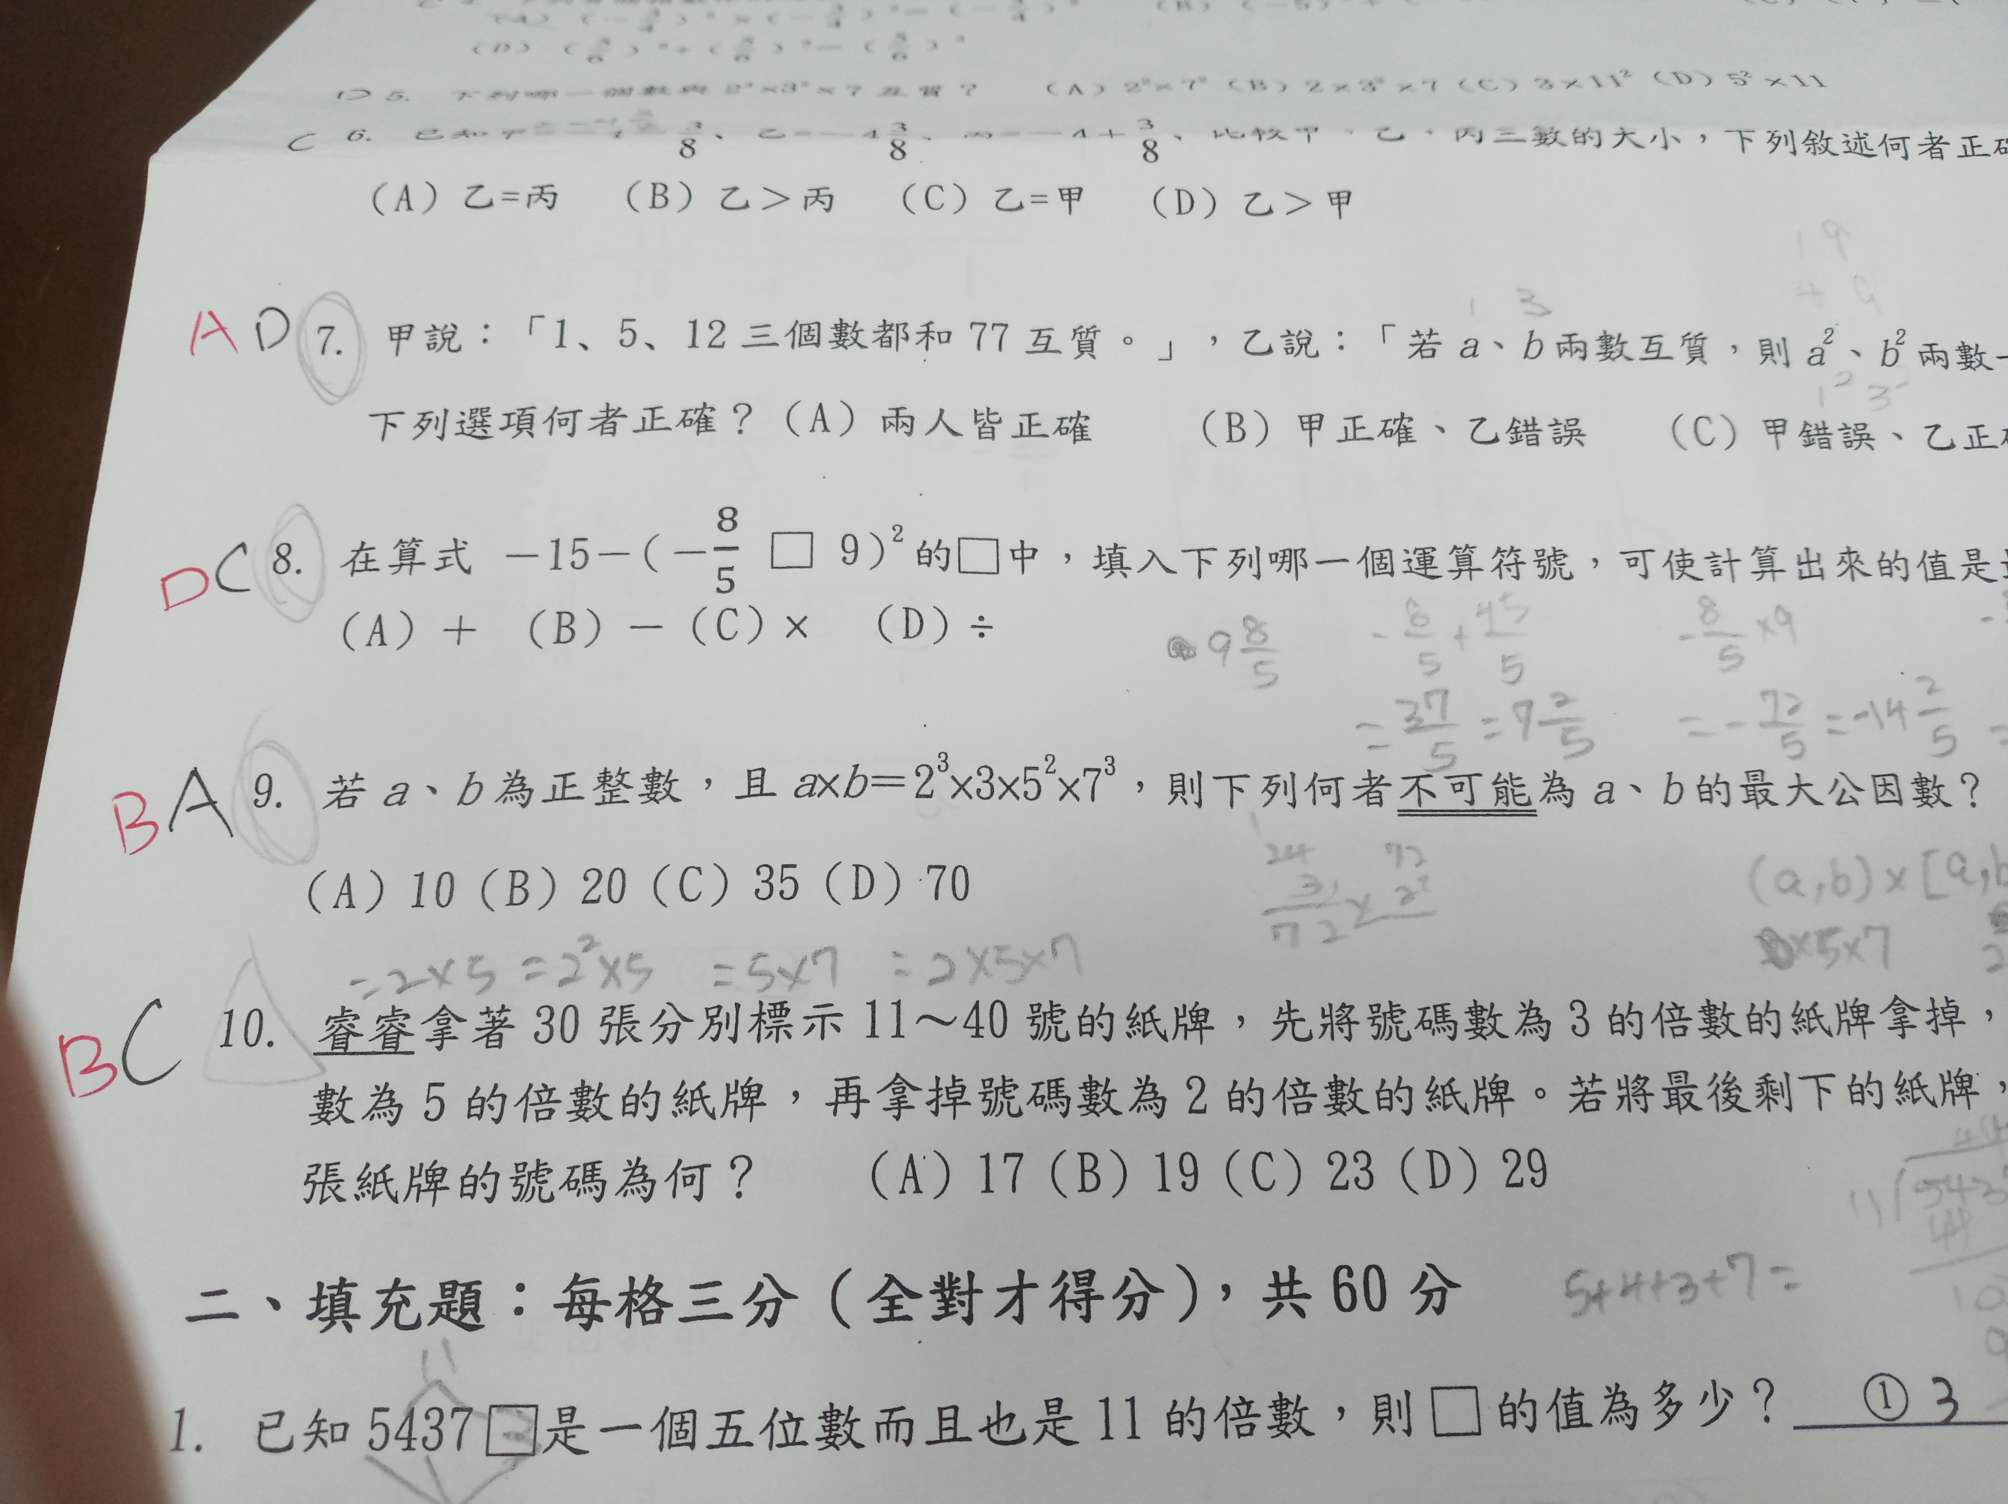 (D)
D 5. 下列哪一個數與 互質？ (A) (B) 2×3²×7 (C) 3×11² (D) 5²×11
C 6. 已知甲 3/8、乙=-4 3/8、丙=-4+3/8、比較甲、乙、丙三數的大小，下列敘述何者正確
(A) 乙=丙 (B) 乙＞丙 (C) 乙=甲 (D) 乙＞甲
19
49
1 3
A D 7. 甲說：「1、5、12 三個數都和 77 互質。」，乙說：「若 a、b 兩數互質，則 a²、b² 兩數一
1² 3²
下列選項何者正確？(A) 兩人皆正確 (B) 甲正確、乙錯誤 (C) 甲錯誤、乙正確
D C 8. 在算式 －15－(－8/5 □ 9)² 的□中，填入下列哪一個運算符號，可使計算出來的值是
(A) ＋ (B) － (C) × (D) ÷
9 8/5 -8/5+45/5 -8/5×9
=37/5=7 2/5 =-72/5=-14 2/5 =
B A 9. 若 a、b 為正整數，且 a×b=2³×3×5²×7³，則下列何者不可能為 a、b 的最大公因數？
(A) 10 (B) 20 (C) 35 (D) 70
24 3 72 72 × (a,b)×[a,b
=2×5 =2²×5 =5×7 =2×5×7 ×5×7
B C 10. 睿睿拿著 30 張分別標示 11～40 號的紙牌，先將號碼數為 3 的倍數的紙牌拿掉，
數為 5 的倍數的紙牌，再拿掉號碼數為 2 的倍數的紙牌。若將最後剩下的紙牌，
張紙牌的號碼為何？ (A) 17 (B) 19 (C) 23 (D) 29
11 543
44
10
二、填充題：每格三分(全對才得分)，共 60 分
5+4+3+7=
11
1. 已知 5437□是一個五位數而且也是 11 的倍數，則□的值為多少？ ① 3